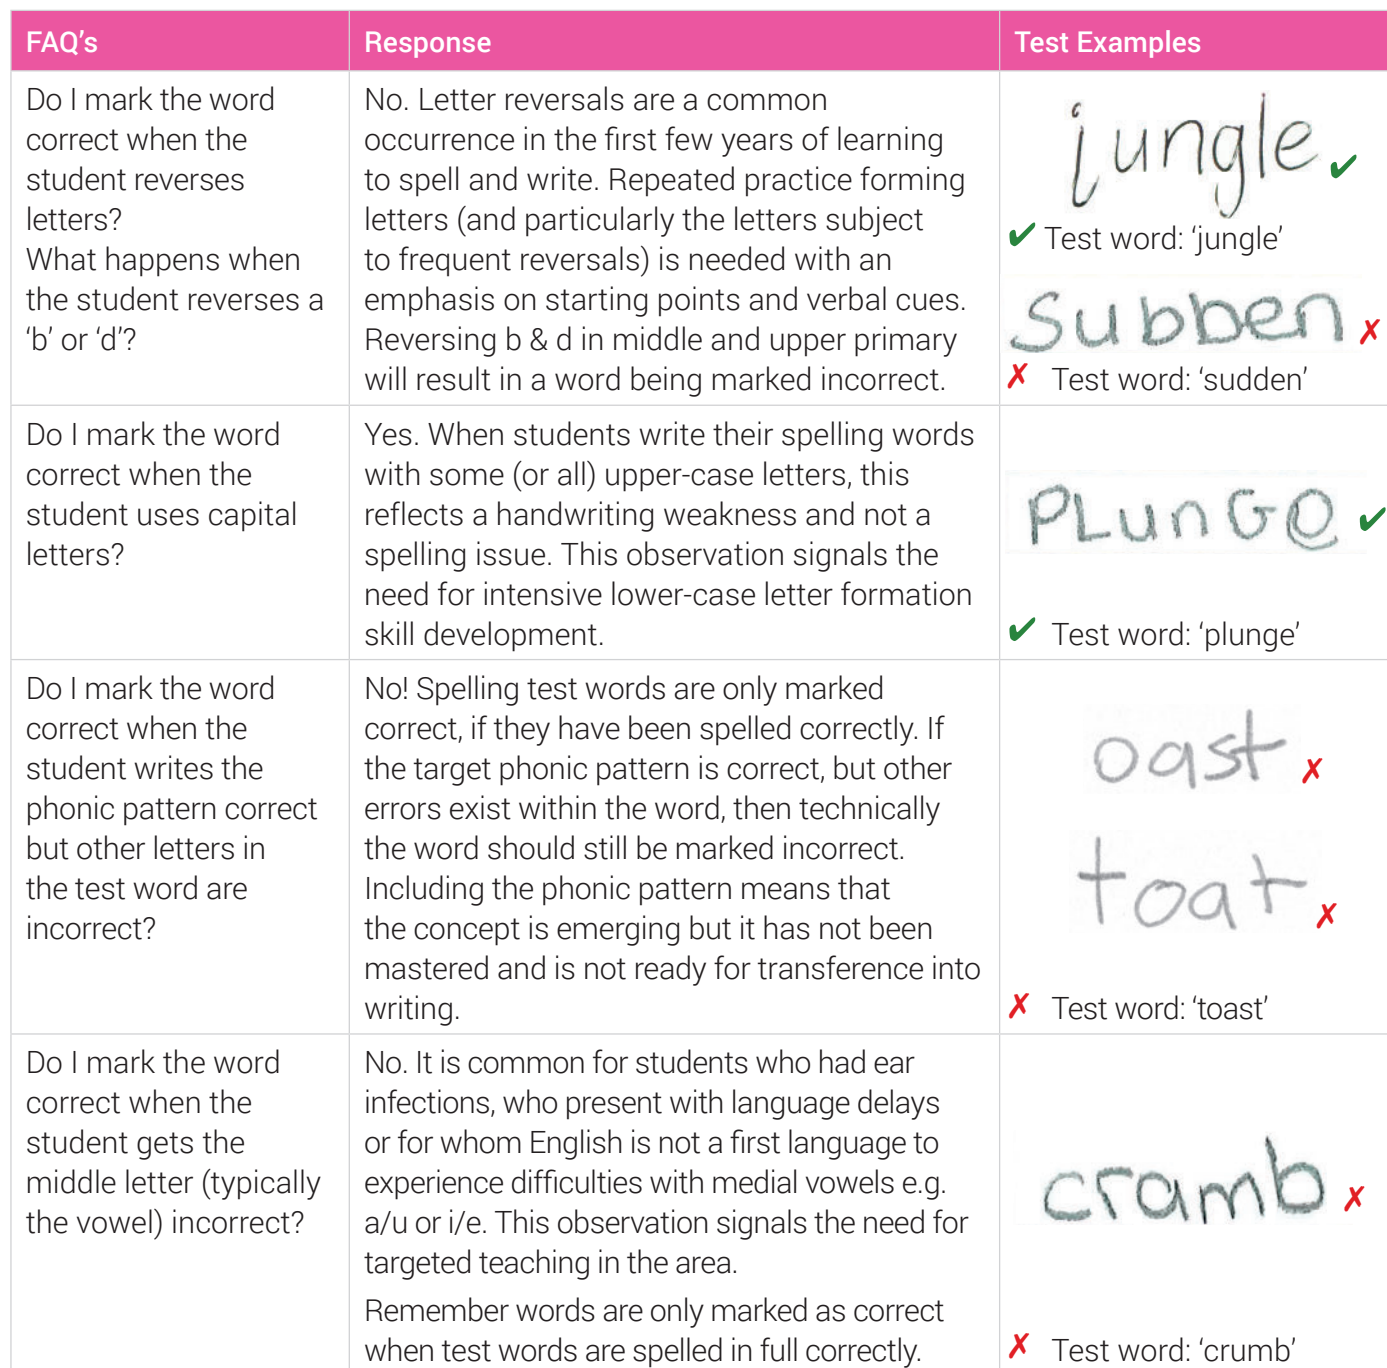 FAQ's
Response
Test Examples
Do I mark the word
correct when the
student reverses
letters?
What happens when
the student reverses a
‘b’ or ‘d’?
No. Letter reversals are a common
occurrence in the first few years of learning
to spell and write. Repeated practice forming
letters (and particularly the letters subject
to frequent reversals) is needed with an
emphasis on starting points and verbal cues.
Reversing b & d in middle and upper primary
will result in a word being marked incorrect.
jungle ✔
✔ Test word: ‘jungle’
Subben ✗
✗ Test word: ‘sudden’
Do I mark the word
correct when the
student uses capital
letters?
Yes. When students write their spelling words
with some (or all) upper-case letters, this
reflects a handwriting weakness and not a
spelling issue. This observation signals the
need for intensive lower-case letter formation
skill development.
PLunGe ✔
✔ Test word: ‘plunge’
Do I mark the word
correct when the
student writes the
phonic pattern correct
but other letters in
the test word are
incorrect?
No! Spelling test words are only marked
correct, if they have been spelled correctly. If
the target phonic pattern is correct, but other
errors exist within the word, then technically
the word should still be marked incorrect.
Including the phonic pattern means that
the concept is emerging but it has not been
mastered and is not ready for transference into
writing.
oast ✗
toat ✗
✗ Test word: ‘toast’
Do I mark the word
correct when the
student gets the
middle letter (typically
the vowel) incorrect?
No. It is common for students who had ear
infections, who present with language delays
or for whom English is not a first language to
experience difficulties with medial vowels e.g.
a/u or i/e. This observation signals the need for
targeted teaching in the area.
Remember words are only marked as correct
when test words are spelled in full correctly.
cramb ✗
✗ Test word: ‘crumb’